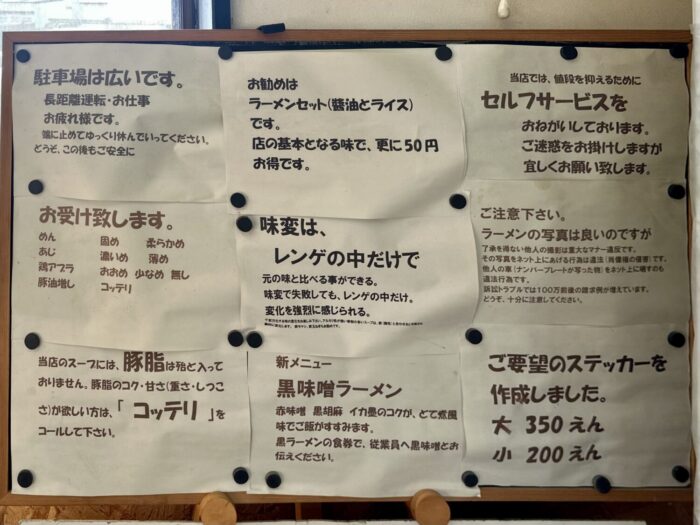 駐車場は広いです。
長距離運転・お仕事
お疲れ様です。
端に止めてゆっくり休んでいってください。
どうぞ、この後もご安全に
お勧めは
ラーメンセット(醤油とライス)
です。
店の基本となる味で、更に50円
お得です。
当店では、値段を抑えるために
セルフサービスを
おねがいしております。
ご迷惑をお掛けしますが
宜しくお願い致します。
お受け致します。
めん 固め 柔らかめ
あじ 濃いめ 薄め
鶏アブラ おおめ 少なめ 無し
豚油増し コッテリ
味変は、
レンゲの中だけで
元の味と比べる事ができる。
味変で失敗しても、レンゲの中だけ。
変化を強烈に感じられる。
ご注意下さい。
ラーメンの写真は良いのですが
了承を得ない他人の撮影は重大なマナー違反です。
その写真をネット上にあげる行為は違法(肖像権の侵害)です。
他人の車(ナンバープレートが写った物)をネット上に晒すのも
違法行為です。
訴訟トラブルでは100万前後の請求例が増えています。
どうぞ、十分に注意してください。
当店のスープには、豚脂は殆と入って
おりません。豚脂のコク・甘さ(重さ・しつこ
さ)が欲しい方は、「コッテリ」を
コールして下さい。
新メニュー
黒味噌ラーメン
赤味噌 黒胡麻 イカ墨のコクが、とて煮風
味でご飯がすすみます。
黒ラーメンの食券で、従業員へ黒味噌とお
伝えください。
ご要望のステッカーを
作成しました。
大 350えん
小 200えん